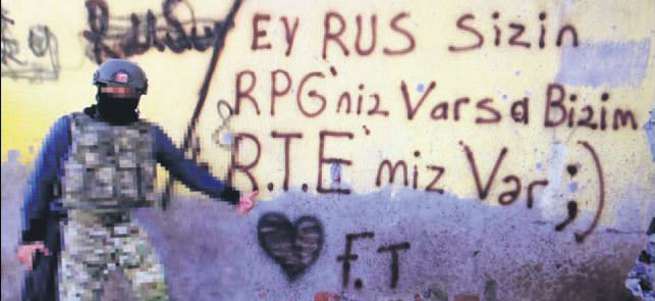 EY RUS Sizin
RPG'niz Varsa Bizim
R.T.E'miz Var ;)
F.T